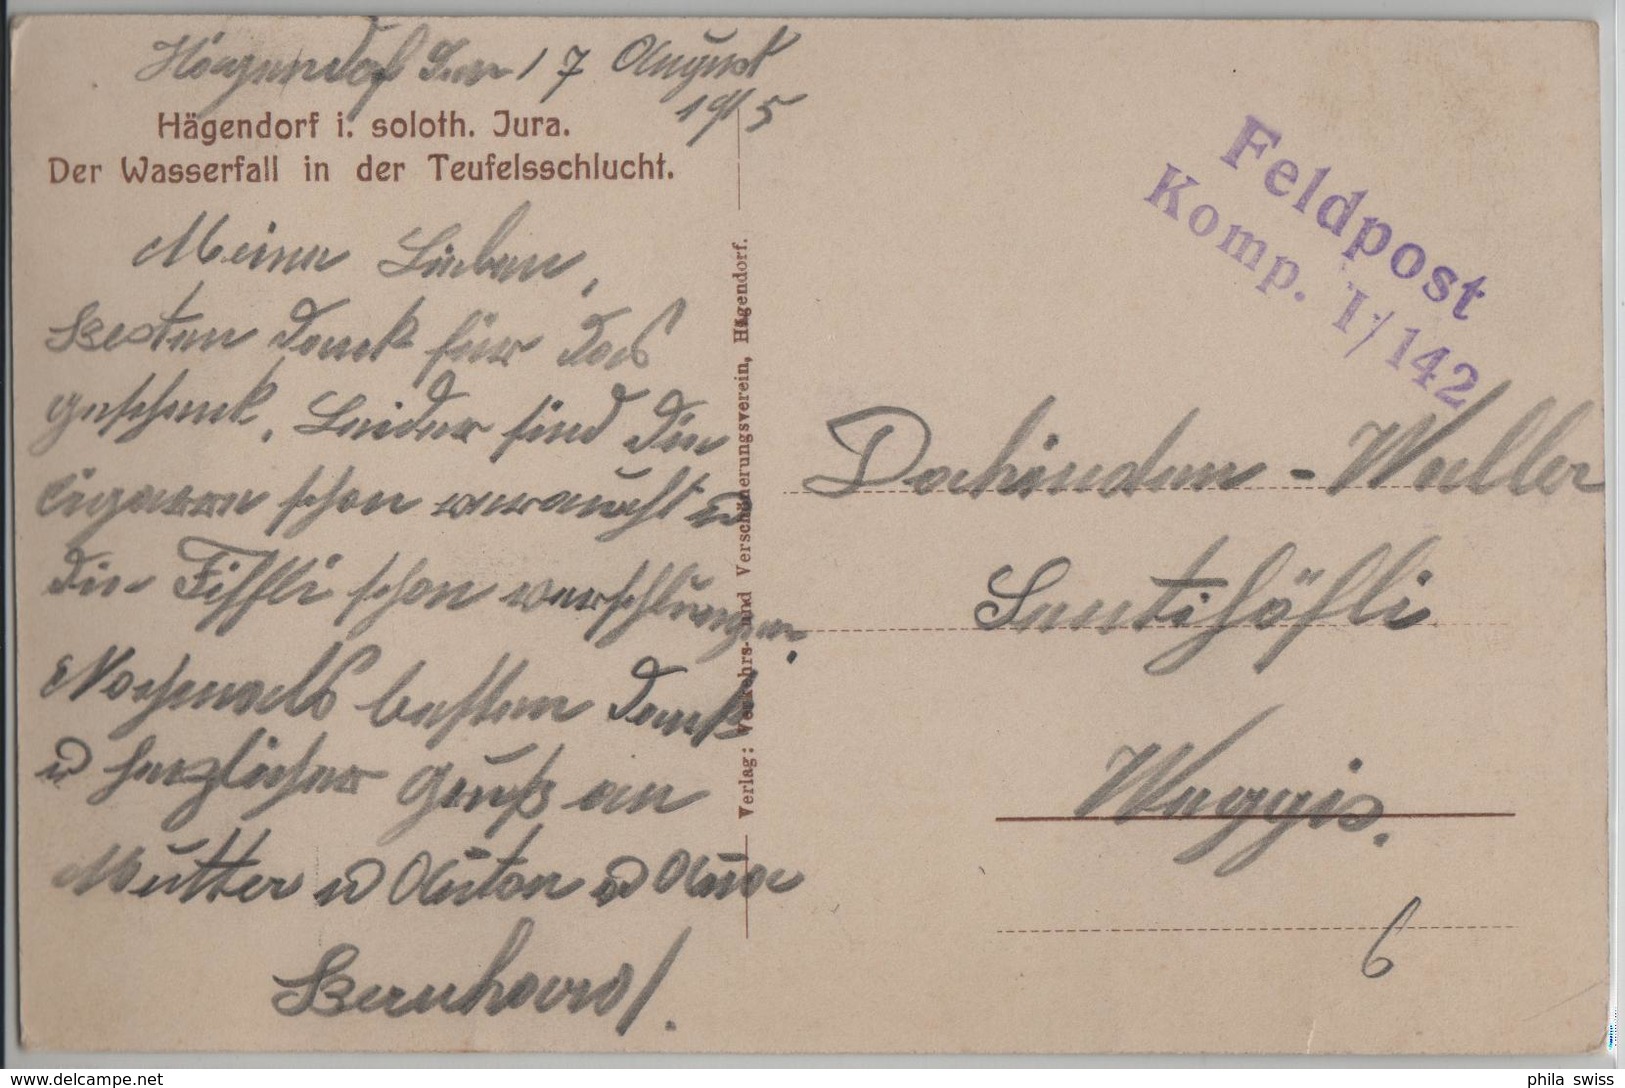 Hägendorf den 17 August
1915
Hägendorf i. soloth. Jura.
Der Wasserfall in der Teufelsschlucht.
Meine Lieben,
Besten Dank für das
geschenk. Leider sind die
Cigarren schon verraucht u
die schon verschlungen.
Nochmals besten Dank
u herzlicher Gruß an
Mutter u Anton u
Bernhard.
Verlag: Verkehrs- und Verschönerungsverein, Hägendorf.
Feldpost
Komp. I/142
Dahinden-Waller
Sentihöfli
Weggis.
6
phila swiss